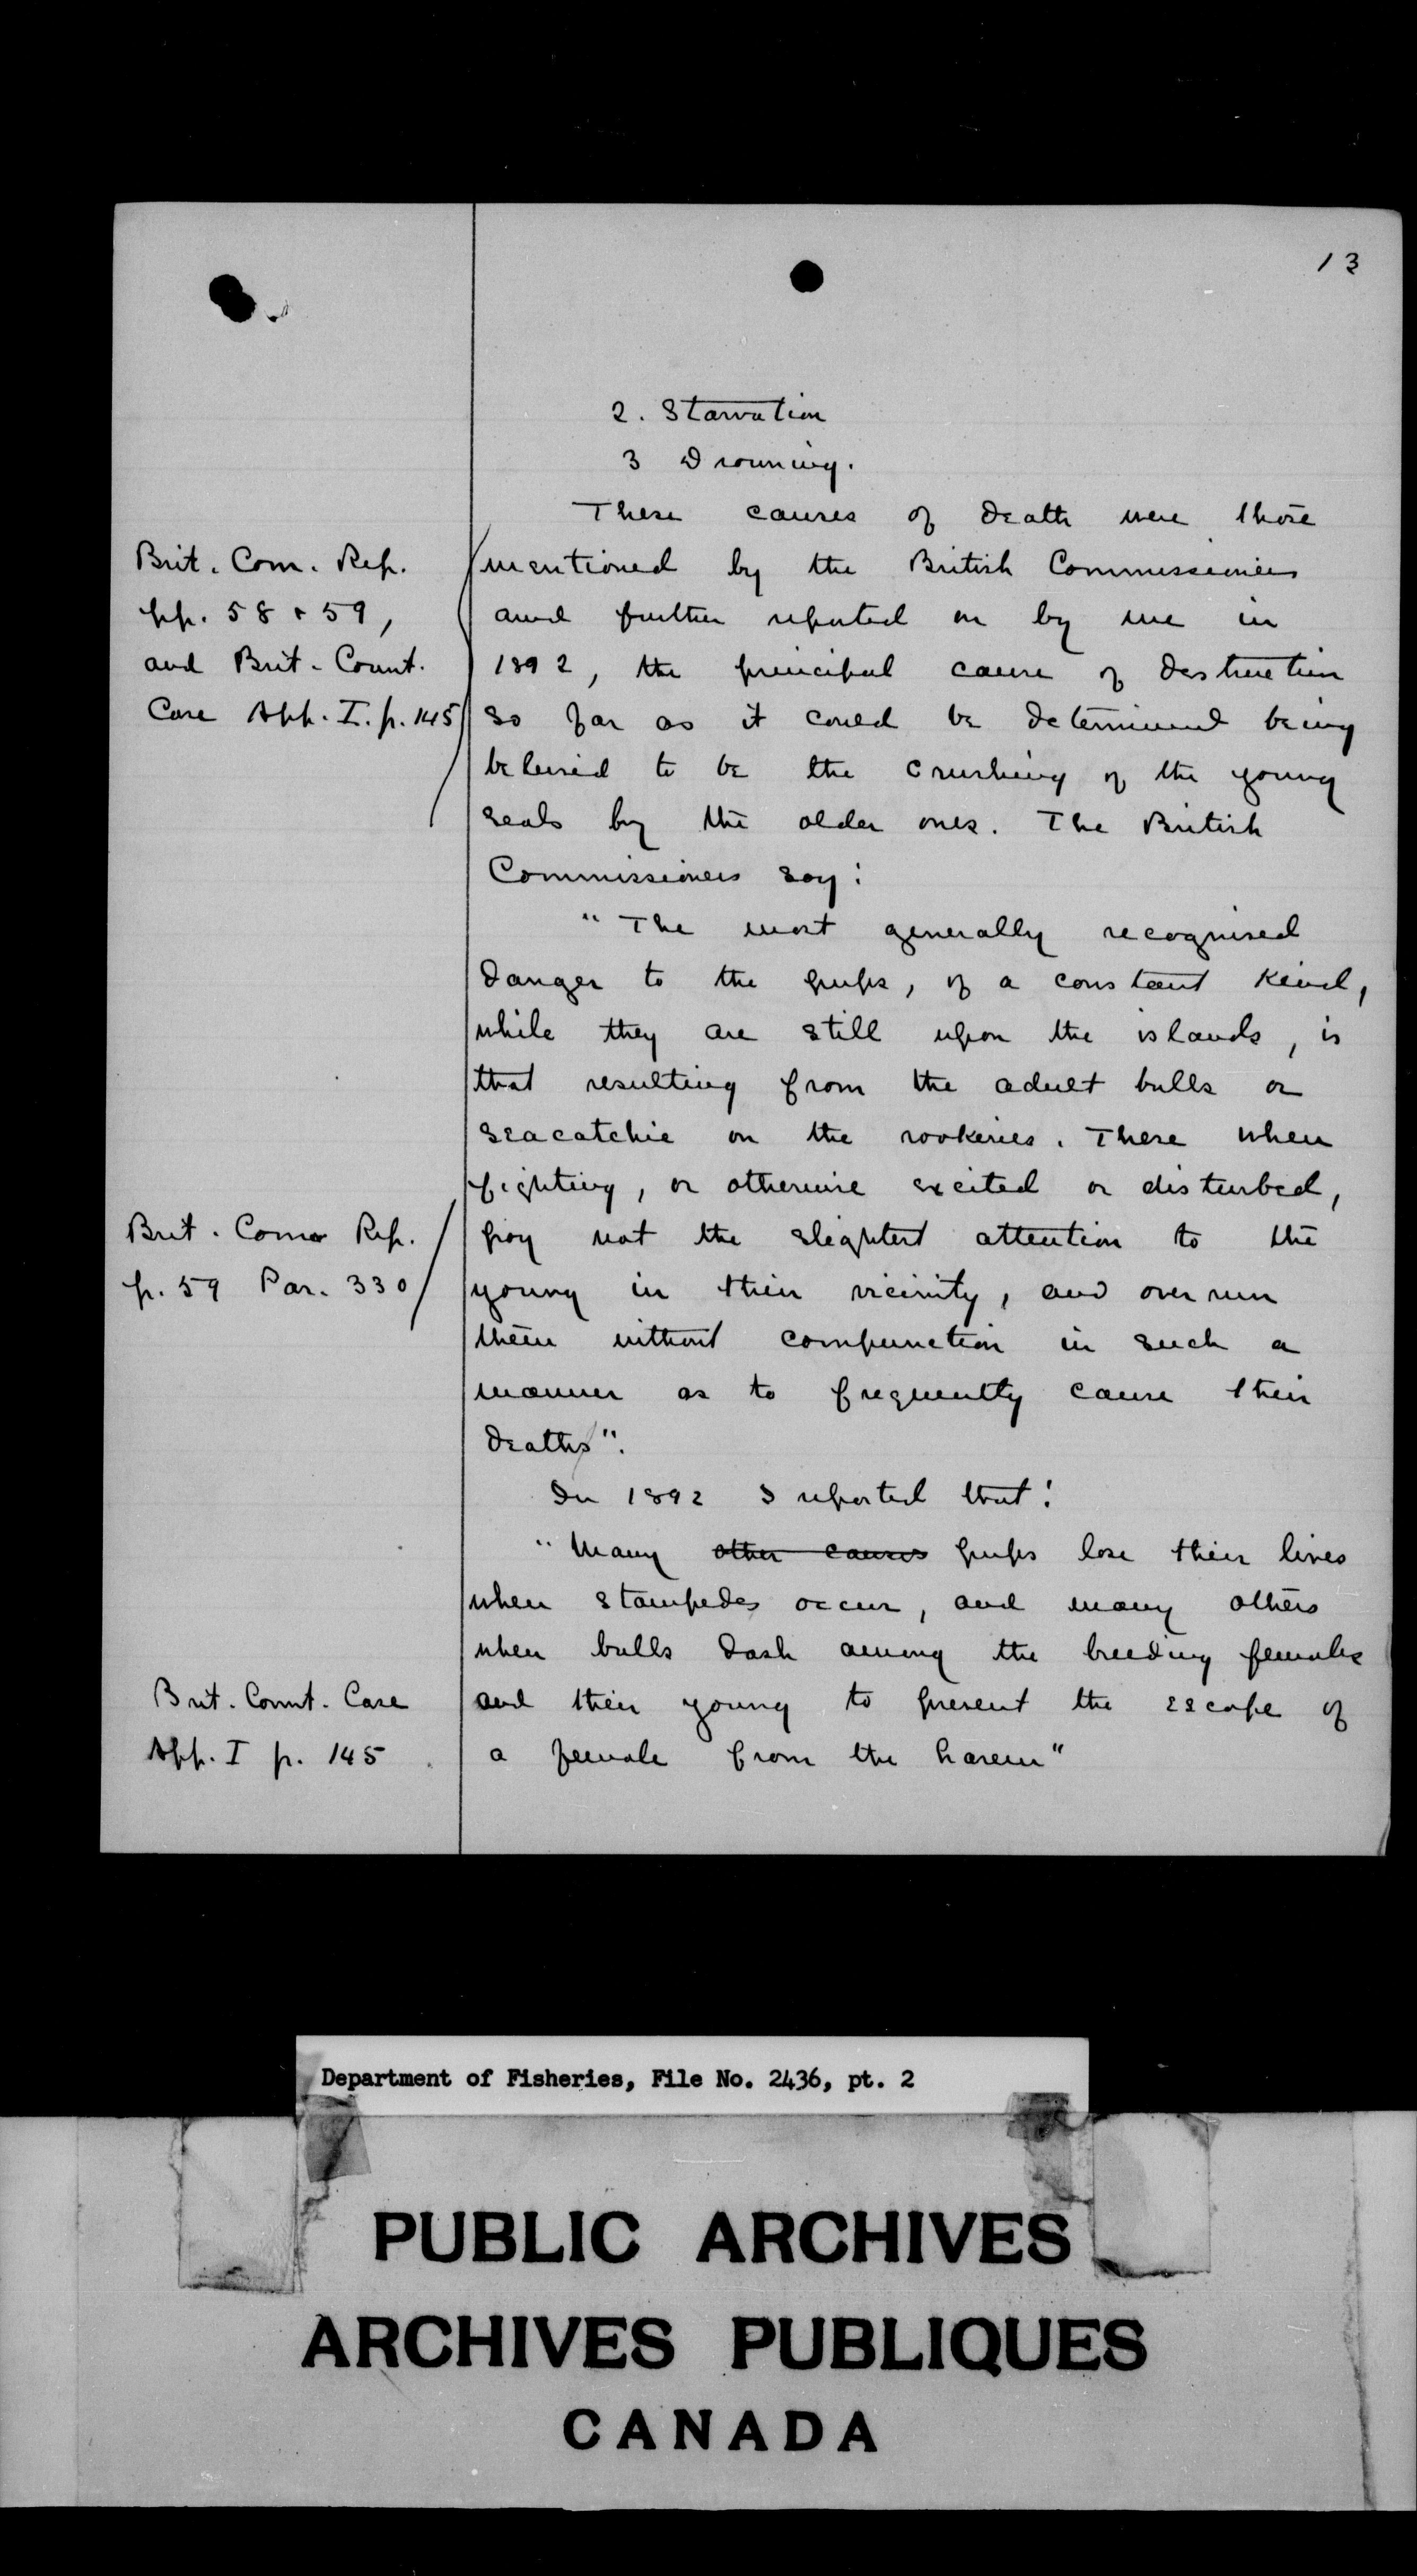 13
2. Starvation
3 Drowning.
These causes of death were those
Brit. Com. Rep.
mentioned by the British Commissioners
pp. 58 & 59,
and further reported on by me in
and Brit. Count.
1892, the principal cause of destruction
Case App. I. p. 145
so far as it could be determined being
believed to be the crushing of the young
seals by the older ones. The British
Commissioners say:
"The most generally recognised
danger to the pups, of a constant kind,
while they are still upon the islands, is
that resulting from the adult bulls or
seacatchie on the rookeries. These when
fighting, or otherwise excited or disturbed,
Brit. Com Rep.
pay not the slightest attention to the
p. 59 Par. 330
young in their vicinity, and over run
them without compunction in such a
manner as to frequently cause their
deaths".
In 1892 I reported that:
"Many other causes pups lose their lives
when stampedes occur, and many others
when bulls dash among the breeding females
Brit. Count. Case
and their young to prevent the escape of
App. I p. 145
a female from the harem"
Department of Fisheries, File No. 2436, pt. 2
PUBLIC ARCHIVES
ARCHIVES PUBLIQUES
CANADA